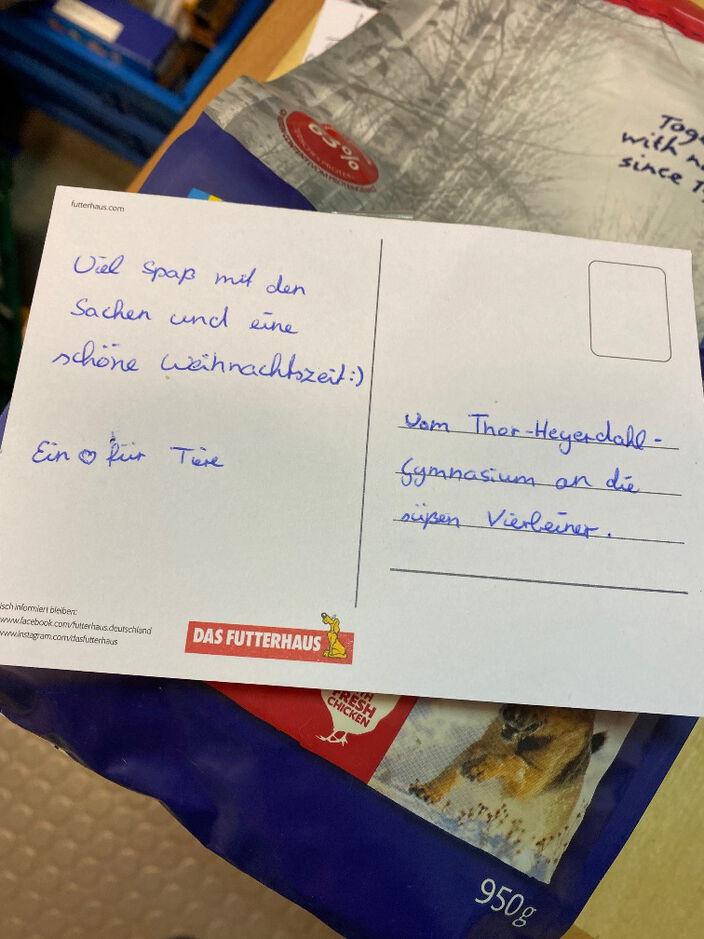 63%
Toge
with n
since
futterhaus.com
Viel Spaß mit den
Sachen und eine
schöne Weihnachtszeit:)
Ein ♡ für Tiere
Vom Thor-Heyerdahl-
Gymnasium an die
süßen Vierbeiner.
isch informiert bleiben:
www.facebook.com/futterhaus.deutschland
www.instagram.com/dasfutterhaus
DAS FUTTERHAUS
FRESH
CHICKEN
950g